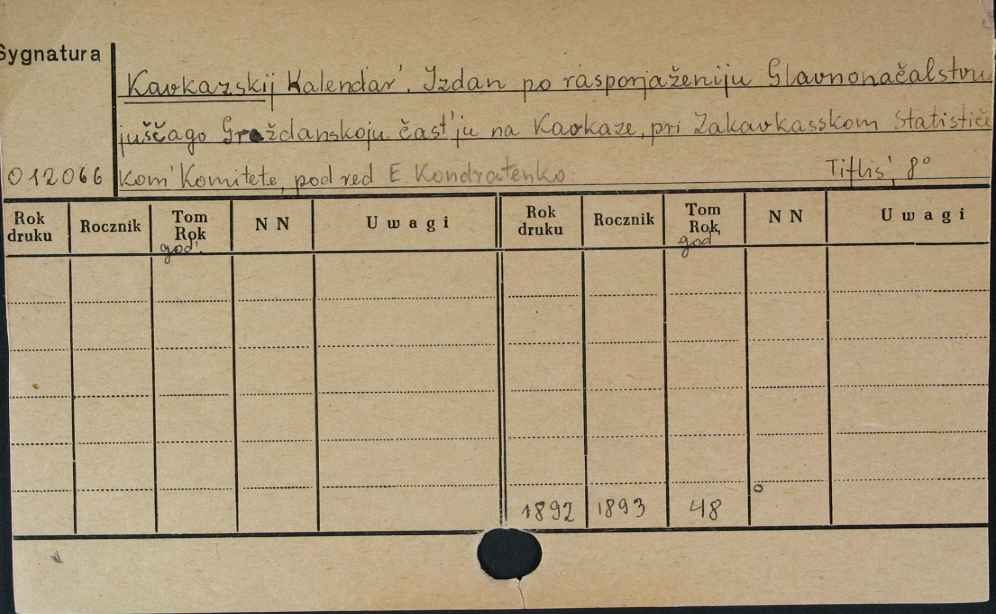 Sygnatura
Kavkazskij Kalendar'. Izdan po rasporjaženiju Glavnonačalstvu
juščago Graždanskoju čast'ju na Kavkaze, pri Zakavkasskom Statističe
012066 kom' Komitete, pod red E. Kondratenko. Tiflis', 8°
Rok druku Rocznik Tom Rok NN Uwagi Rok druku Rocznik Tom Rok, NN Uwagi
god'. god
1892 1893 48